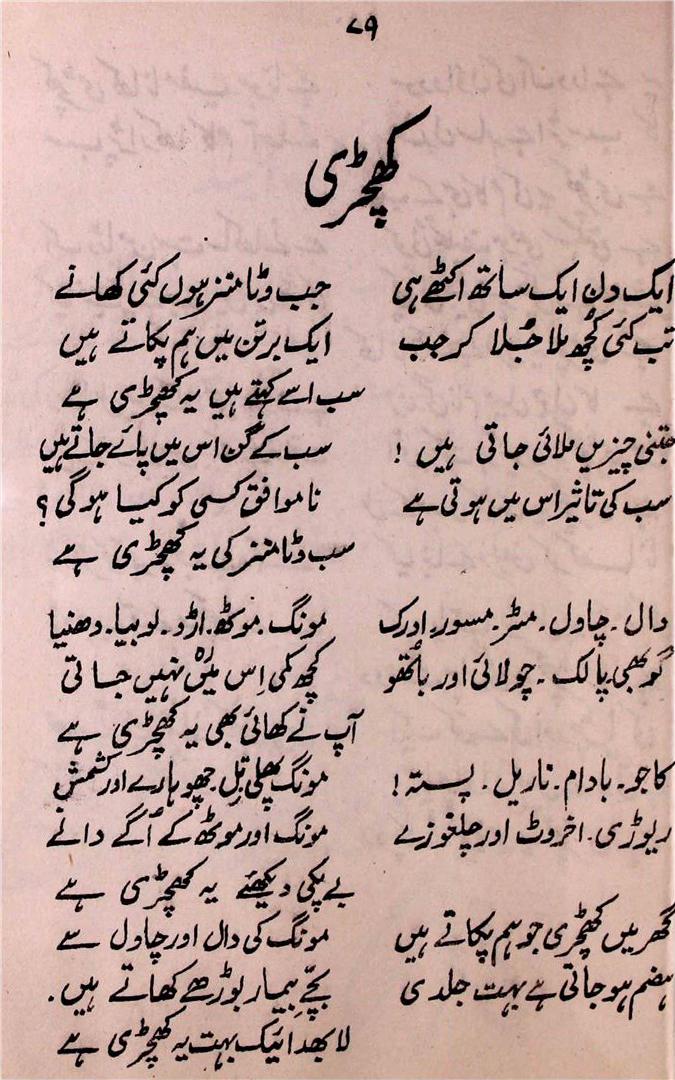 ۷۹
کھچڑی
ایک دن ایک ساتھ اکٹھے ہی جب وٹامنز ہوں کئی کھانے
تب کئی کُچھ ملا جُلا کر جب ایک برتن میں ہم پکاتے ہیں
سب اسے کہتے ہیں یہ کھچڑی ہے
جتنی چیزیں ملائی جاتی ہیں ! سب کے گن اس میں پائے جاتے ہیں
سب کی تاثیر اس میں ہوتی ہے ناموافق کسی کو کیا ہوگی ؟
سب وٹامنز کی یہ کھچڑی ہے
دال ۔ چاول ۔ مٹر ۔ مسور ۔ ادرک مونگ ۔ موٹھ ۔ اڑد ۔ لوبیا ۔ دھنیا
گوبھی ۔ پالک ۔ چولائی اور باتھو کچھ کمی اِس میں رہ نہیں جاتی
آپ نے کھائی بھی یہ کھچڑی ہے
کاجو ۔ بادام ۔ ناریل ۔ پستہ ! مونگ پھلی تِل ۔ چھوہارے اور کشمش
ریوڑی ۔ اخروٹ اور چلغوزے مونگ اور موٹھ کے اُگے دانے
بے پکی دیکھئے یہ کھچڑی ہے
گھر میں کھچڑی جو ہم پکاتے ہیں مونگ کی دال اور چاول سے
ہضم ہو جاتی ہے بہت جلدی بچّے بیمار بوڑھے کھاتے ہیں ۔
لابھدائیک بہت یہ کھچڑی ہے